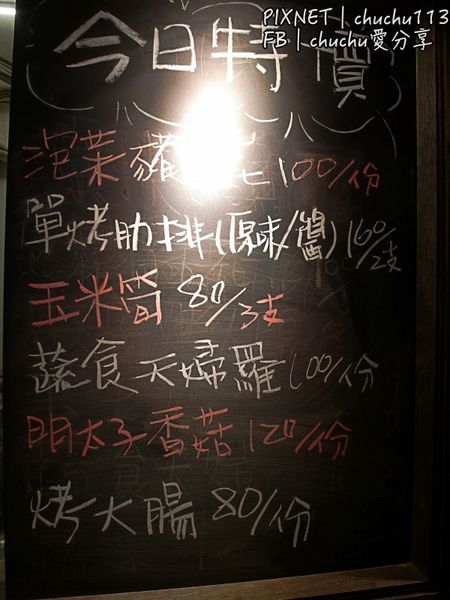 PIXNET | chuchu113
FB | chuchu愛分享
今日特價
泡菜豬 100/份
單烤肋排(原味/醬) 160/2支
玉米筍 80/3支
蔬食天婦羅 100/份
明太子香菇 120/份
烤大腸 80/份